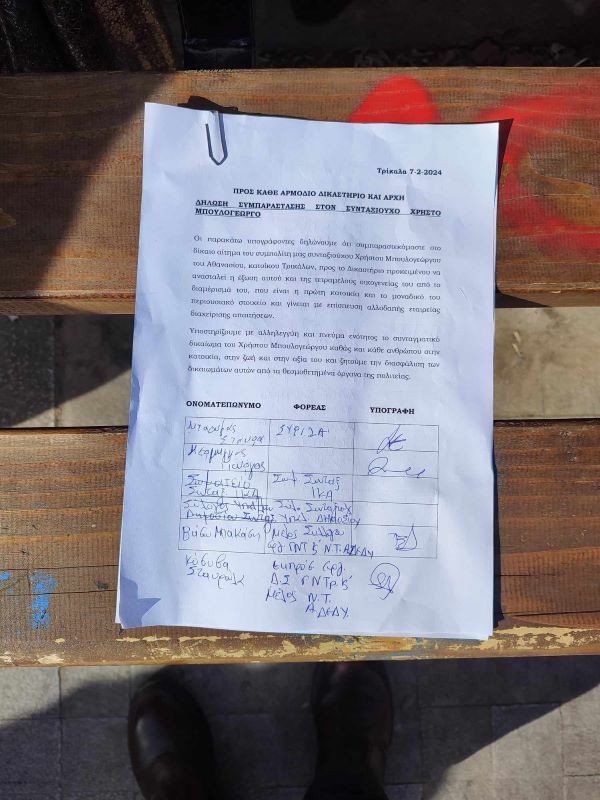 Τρίκαλα 7-2-2024
ΠΡΟΣ ΚΑΘΕ ΑΡΜΟΔΙΟ ΔΙΚΑΣΤΗΡΙΟ ΚΑΙ ΑΡΧΗ
ΔΗΛΩΣΗ ΣΥΜΠΑΡΑΣΤΑΣΗΣ ΣΤΟΝ ΣΥΝΤΑΞΙΟΥΧΟ ΧΡΗΣΤΟ
ΜΠΟΥΛΟΓΕΩΡΓΟ
Οι παρακάτω υπογράφοντες δηλώνουμε ότι συμπαραστεκόμαστε στο
δίκαιο αίτημα του συμπολίτη μας συνταξιούχου Χρήστου Μπουλογεώργου
του Αθανασίου, κατοίκου Τρικάλων, προς το Δικαστήριο προκειμένου να
ανασταλεί η έξωση αυτού και της τετραμελούς οικογενείας του από το
διαμέρισμά του, που είναι η πρώτη κατοικία και το μοναδικό του
περιουσιακό στοιχείο και γίνεται με επίσπευση αλλοδαπής εταιρείας
διαχείρισης απαιτήσεων.
Υποστηρίζουμε με αλληλεγγύη και πνεύμα ενότητος το συνταγματικό
δικαίωμα του Χρήστου Μπουλογεώργου καθώς και κάθε ανθρώπου στην
κατοικία, στην ζωή και στην αξία του και ζητούμε την διασφάλιση των
δικαιωμάτων αυτών από τα θεσμοθετημένα όργανα της πολιτείας.
ΟΝΟΜΑΤΕΠΩΝΥΜΟ ΦΟΡΕΑΣ ΥΠΟΓΡΑΦΗ
ΣΥΡΙΖΑ
Σωματείο Σωμ Συνταξ
Συνταξ ΙΚΑ ΙΚΑ
Βάσω Μπακάση Μέλος
Δ.Σ
Σταυρούλα
μέλος Ν.Τ.
ΑΔΕΔΥ